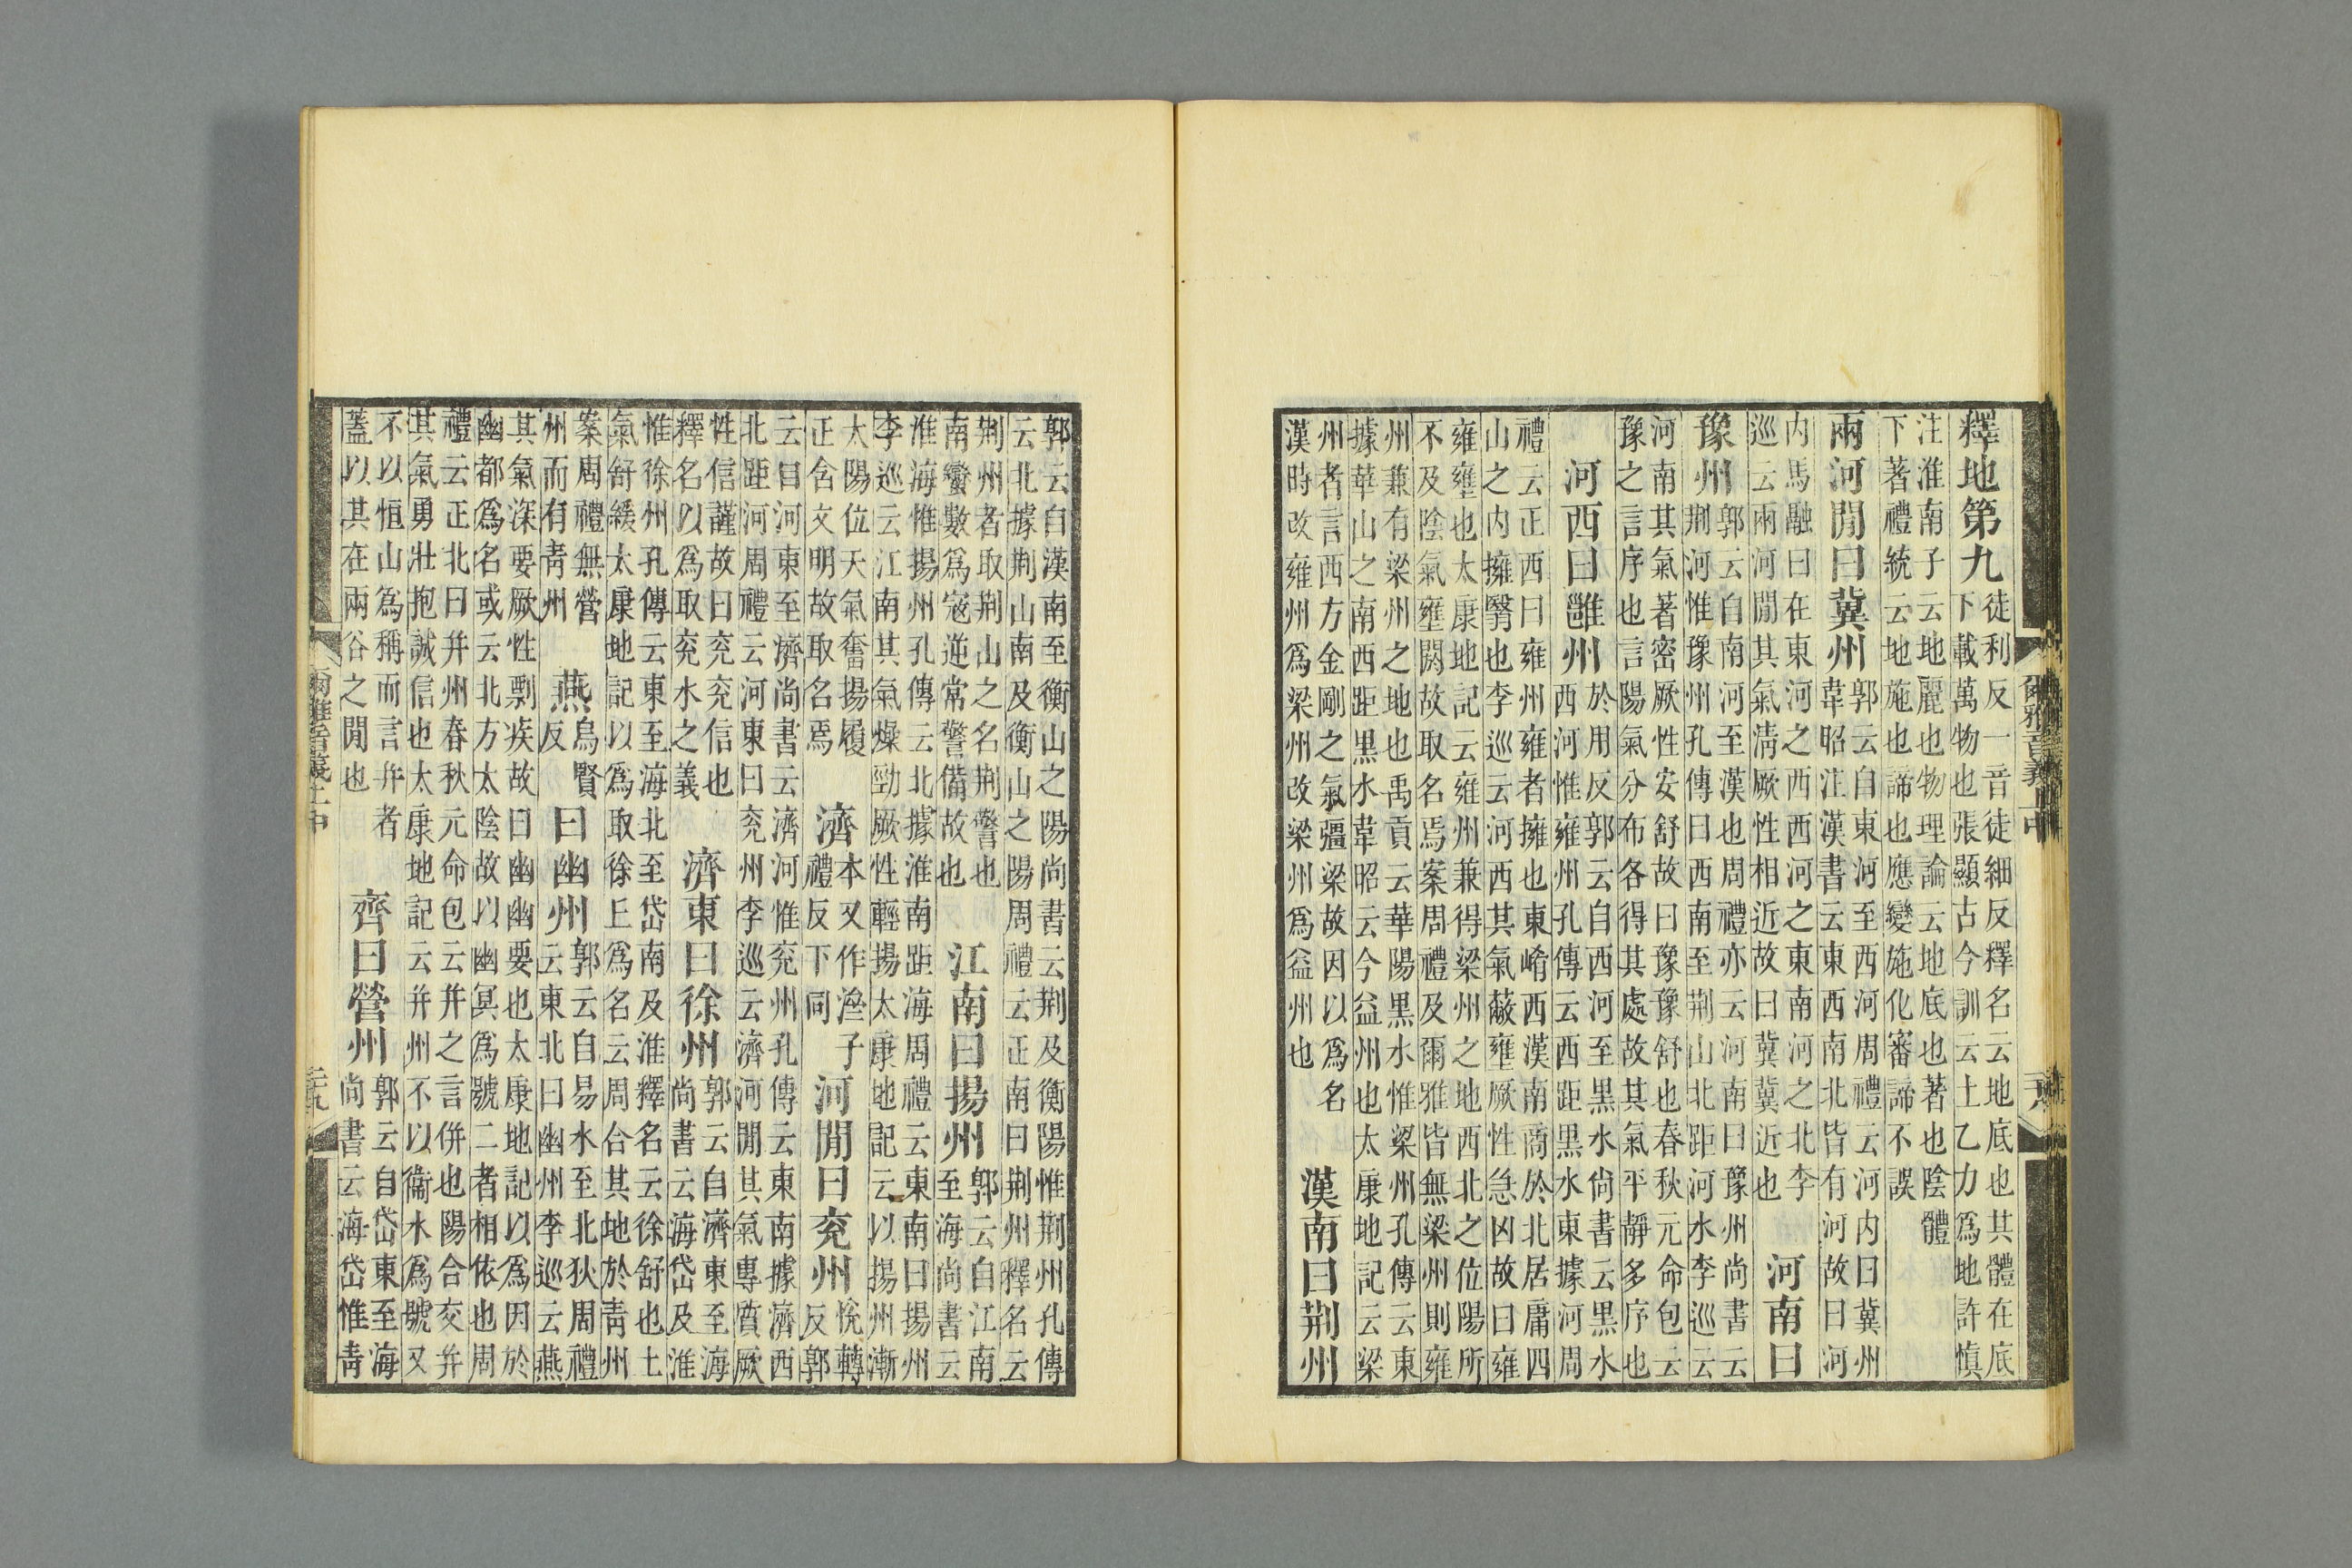 爾雅音義上中
釋地第九
徒利反一音徒細反釋名云地底也其體在底
下載萬物也張顯古今訓云土乙力爲地許慎
注淮南子云地麗也物理論云地底也著也陰體
下著禮統云地施也諦也應變施化審諦不誤
兩河閒曰冀州
郭云自東河至西河周禮云河内曰冀州
韋昭注漢書云東西南北皆有河故曰河
内馬融曰在東河之西西河之東南河之北李
巡云兩河閒其氣清厥性相近故曰冀冀近也
河南曰
豫州
郭云自南河至漢也周禮亦云河南曰豫州尚書云
荆河惟豫州孔傳曰西南至荆山北距河水李巡云
河南其氣著密厥性安舒故曰豫豫舒也春秋元命包云
豫之言序也言陽氣分布各得其處故其氣平靜多序也
河西曰雝州
於用反郭云自西河至黑水尚書云黑水
西河惟雍州孔傳云西距黑水東據河周
禮云正西曰雍州雍者擁也東崤西漢南商於北居庸四
山之内擁翳也李巡云河西其氣蔽壅厥性急凶故曰雍
雍壅也太康地記云雍州兼得梁州之地西北之位陽所
不及陰氣壅閼故取名焉案周禮及爾雅皆無梁州則雍
州兼有梁州之地也禹貢云華陽黑水惟梁州孔傳云東
據華山之南西距黑水韋昭云今益州也太康地記云梁
州者言西方金剛之氣彊梁故因以爲名
漢時改雍州爲梁州改梁州爲益州也
漢南曰荆州
郭云自漢南至衡山之陽尚書云荆及衡陽惟荆州孔傳
云北據荆山南及衡山之陽周禮云正南曰荆州釋名云
荆州者取荆山之名荆警也
南蠻數爲寇逆常警備故也
江南曰揚州
郭云自江南
至海尚書云
淮海惟揚州孔傳云北據淮南距海周禮云東南曰揚州
李巡云江南其氣燥勁厥性輕揚太康地記云以揚州漸
太陽位天氣奮揚履
正含文明故取名焉
濟
本又作泲子
禮反下同
河閒曰兖州
悅轉
反郭
云自河東至濟尚書云濟河惟兖州孔傳云東南據濟西
北距河周禮云河東曰兖州李巡云濟河閒其氣專質厥
性信謹故曰兖兖信也
釋名以爲取兖水之義
濟東曰徐州
郭云自濟東至海
尚書云海岱及淮
惟徐州孔傳云東至海北至岱南及淮釋名云徐舒也土
氣舒緩太康地記以爲取徐丘爲名云周合其地於青州
案周禮無營
州而有青州
燕
烏賢
反
曰幽州
郭云自易水至北狄周禮
云東北曰幽州李巡云燕
其氣深要厥性剽疾故曰幽幽要也太康地記以爲因於
幽都爲名或云北方太陰故以幽冥爲號二者相依也周
禮云正北曰并州春秋元命包云并之言併也陽合交并
其氣勇壯抱誠信也太康地記云并州不以衞水爲號又
不以恒山爲稱而言并者
蓋以其在兩谷之閒也
齊曰營州
郭云自岱東至海
尚書云海岱惟青
爾雅音義上中
二十九